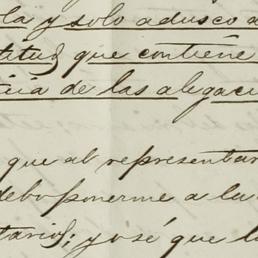 la y solo adusco a
titud que contiene
cia de las alegaci
que al representar
debo ponerme a la
tarios; y o sé que l